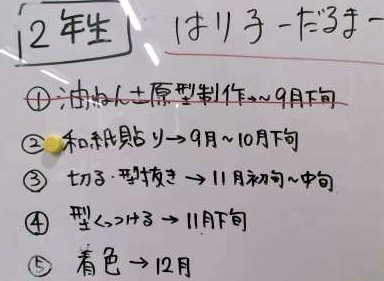 2年生 はり子ーだるまー
① 油ねん土原型制作→~9月下旬
② 和紙貼り→9月~10月下旬
③ 切る・型抜き→11月初旬~中旬
④ 型くっつける→11月下旬
⑤ 着色→12月